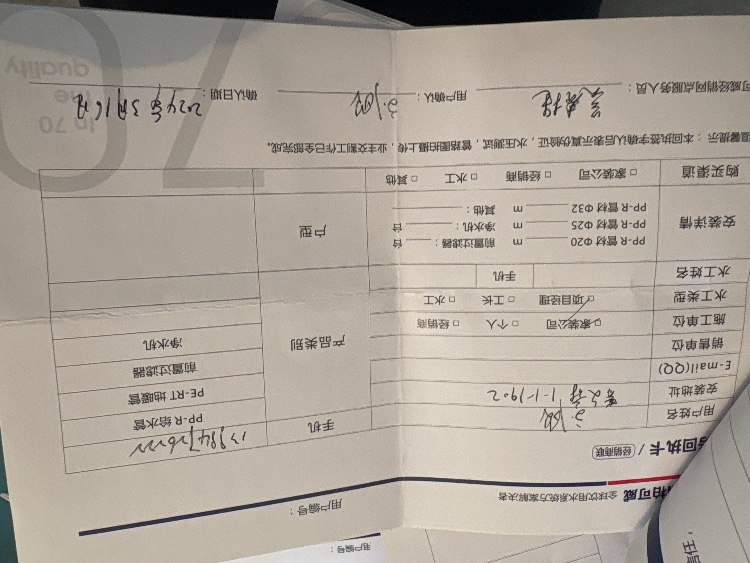 用户编号：
柏可威 全球饮用水系统方案解决者
用户编号：
回执卡 / 经销商联
用户姓名
手机
安装地址 1-1-1902
E-mail(QQ)
销售单位
施工单位 □ 家装公司 □ 个人 □ 经销商
水工类型 □ 项目经理 □ 工长 □ 水工
水工姓名 手机
产品类别
PP-R 给水管
PE-RT 地暖管
前置过滤器
净水机
安装详情
PP-R 管材 Φ20 m 前置过滤器： 台
PP-R 管材 Φ25 m 净水机： 台
PP-R 管材 Φ32 m 其他：
户型
购买渠道 □ 家装公司 □ 经销商 □ 水工 □ 其他
温馨提示：本回执签字确认后表示真伪验证，水压测试，管路图拍摄上传，业主交割工作已全部完成。
可威经销网点服务人员：
用户确认：
确认日期：2024年3月16日
In 70
the
quality
70
信任，